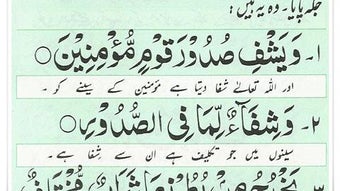 جگہ پایا۔ وہ یہ ہیں:
۱۔ وَيَشْفِ صُدُوْرَ قَوْمٍ مُّؤْمِنِيْنَ ○
اور اللہ تعالےٰ شفا دیتا ہے مؤمنین کے سینے کو ۔
۲۔ وَشِفَآءٌ لِّمَا فِى الصُّدُوْرِ ○
سینوں میں جو تکلیف ہے ان سے شفا ہے ۔